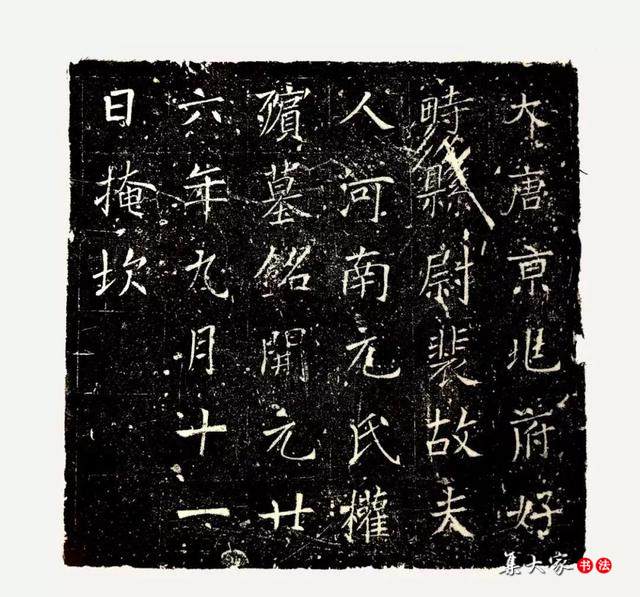 大唐京兆府好
畤縣尉裴故夫
人河南元氏權
殯墓銘開元廿
六年九月十一
日掩坎
集大家书法